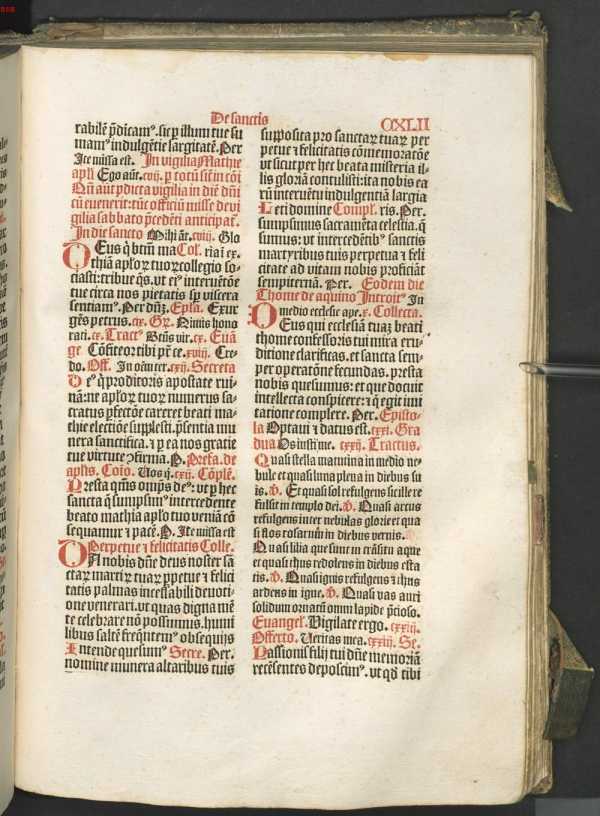 De sanctis
CCXLII
rabilẽ p̃dicamꝰ. sic ꝑ illum tue su
mamꝰ indulgẽtie largitatẽ. Per
Ite missa est. In vigilia Mathie
apl̃i Ego aũt. cvij. ꝑ totũ sit in cõi
Nũ aũt ꝑdicta vigilia in die dñi
cũ euenerit: tũc officiũ misse de vi
gilia sabbato p̃cedẽti anticipat̃.
In die sancto Mihi ãt. cviij. Glo
DEus q̇ btm̃ ma Col. ria ĩ ex.
thiã apl̃oꝝ tuoꝝ collegio so⸗
ciasti: tribue q̃s. vt eiꝰ interuẽtõe
tue circa nos pietatis sꝑ viscera
sentiamꝰ. Per dñꝫ. Epl̃a. Exur
gẽs petrus. cx. Gꝛ. Nimis hono
rati. cx. Tractꝰ Btũs vir. cx. Euã
ge Cõfiteor tibi p̃r ce. xviij. Cre⸗
do. Off. In oẽm ter. cxij. Secreta
Deꝰ q̇ proditoris apostate rui⸗
nã: ne apl̃oꝝ tuoꝝ numerus sa⸗
cratus ꝑfectõe careret beati ma⸗
thie electiõe supplesti. p̃sentia mu
nera sanctifica. ⁊ ꝑ ea nos gratie
tue virtute ꝯfirma. P. Prefa. de
apl̃is. Cõio. Uos q̇. cxij. Cõplẽ.
Presta qm̃s oĩp̃s deꝰ: vt ꝑ hec
sancta q̃ sumpsimꝰ intercedente
beato mathia apl̃o tuo veniã cõ
sequamur ⁊ pacẽ. P. Ite missa est
Perpetue ⁊ felicitatis Colle.
DA nobis dñe deus noster sã
ctaꝝ martiꝝ tuaꝝ ꝑpetue ⁊ felici
tatis palmas incessabili deuoti⸗
one venerari. vt quas digna mẽ
te celebrare nõ possumus. humi
libus saltẽ freq̃ntemꝰ obsequijs
Intende quesumꝰ Secre. Per.
nomine munera altaribus tuis
supposita pro sanctaꝝ tuaꝝ per
petue ⁊ felicitatis cõmemoratõe
vt sicut per hec beata misteria il⸗
lis gloriã contulisti: ita nobis ea
rũ interuẽtu indulgentiã largia
Leti domine Compl. ris. Per.
sumpsimus sacramẽta celestia. q̃
sumus: vt intercedẽtibꝰ sanctis
martyribus tuis perpetua ⁊ feli
citate ad vitam nobis proficiãt
sempiternã. Per. Eodem die
Thome de aquino Introitꝰ In
medio ecclesie ape. x. Collecta.
DEus qui ecclesiã tuaꝫ beati
thome confessoris tui mira eru⸗
ditione clarificas. et sancta sem⸗
per operatõne fecundas. presta
nobis quesumus: et que docuit
intellectu conspicere: ⁊ q̃ egit imi
tatione complere. Per. Episto⸗
la Optaui ⁊ datus est. cxxi. Gra
dua Os iusti me. cxxij. Tractus.
Quasi stella matutina in medio ne⸗
bule et quasi luna plena in diebus su
is. V. Et quasi sol refulgens sic ille re
fulsit in templo dei. V. Quasi arcus
refulgens inter nebulas glorie: et qua
si flos rosarum in diebus vernis.
Quasi lilia que sunt in trãsitu aque
et quasi thus redolens in diebus esta
tis. V. Quasi ignis refulgens ⁊ thus
ardens in igne. V. Quasi vas auri
solidum ornatũ omni lapide p̃cioso.
Euangel. Uigilate ergo. cxxij.
Offerto. Ueritas mea. cxxij. Se.
Passionis filij tui dñe memoriã
recẽsentes deposcimꝰ. vt qd̃ tibi